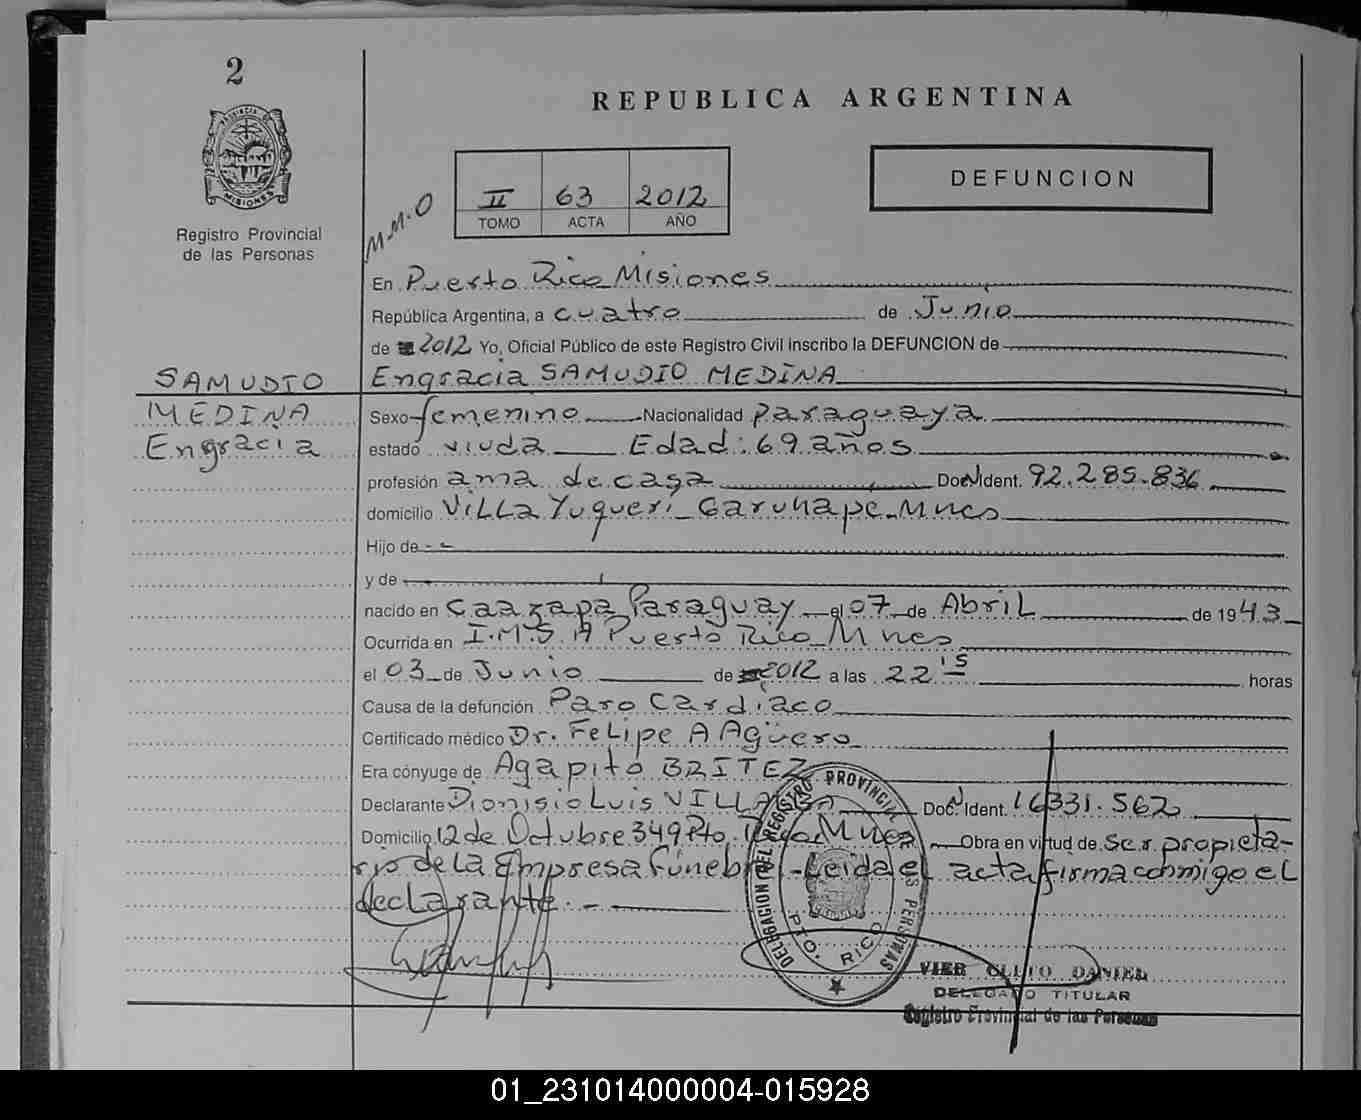 2
REPUBLICA ARGENTINA
PROVINCIA DE
MISIONES
Registro Provincial
de las Personas
M.M.O
II 63 2012
TOMO ACTA AÑO
DEFUNCION
En Puerto Rico Misiones
República Argentina, a cuatro de Junio
de 2012 Yo, Oficial Público de este Registro Civil inscribo la DEFUNCION de
SAMUDIO
MEDINA
Engracia
Engracia SAMUDIO MEDINA
Sexo femenino Nacionalidad Paraguaya
estado viuda Edad: 69 años
profesión ama de casa Doc Ident. 92.285.836
domicilio Villa Yuquerí - Garuhape - Mnes
Hijo de - -
y de
nacido en Caazapa Paraguay el 07 de Abril de 1943
Ocurrida en I.M.S.A Puerto Rico Mnes
el 03 de Junio de 2012 a las 22 15 horas
Causa de la defunción Paro Cardíaco
Certificado médico Dr. Felipe A Agüero
Era cónyuge de Agapito BRITEZ
Declarante Dionisio Luis Doc. Ident. 16331.562
Domicilio 12 de Octubre 349 Pto. Rico Mnes Obra en virtud de Ser propieta-
rio de la Empresa Fúnebre - Leida el acta firma conmigo el
declarante. -
DELEGACION DEL REGISTRO PROVINCIAL DE LAS PERSONAS
PTO. RICO
VIER CLETO DANIEL
DELEGADO TITULAR
Registro Provincial de las Personas
01_231014000004-015928